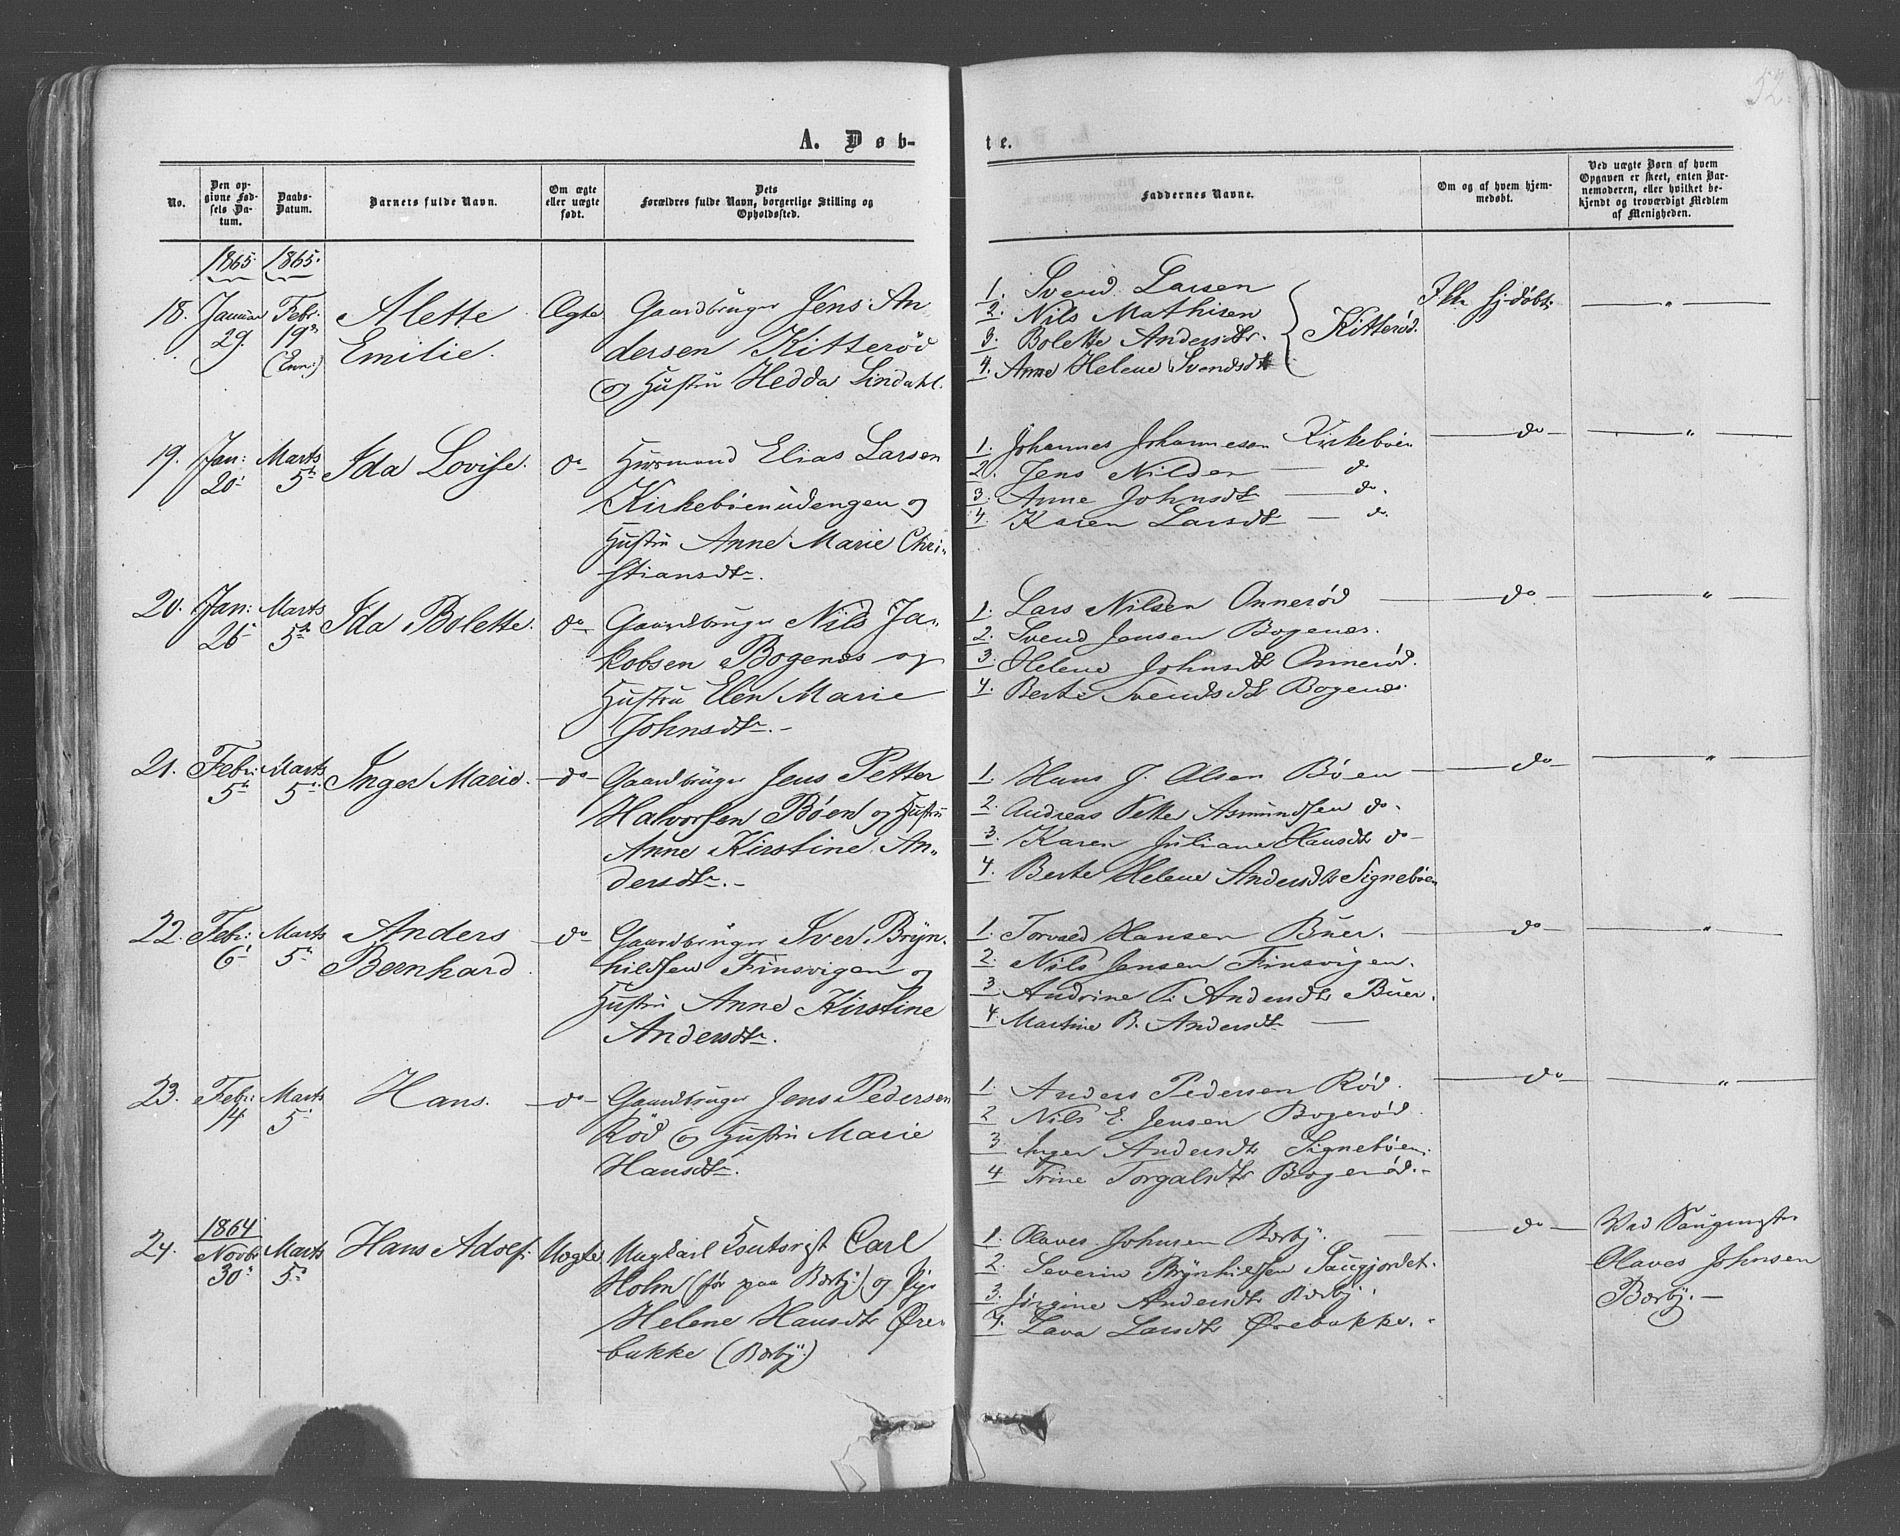 52.
A. Døb-
te.
No.
Den op-
givne Fød-
sels Da-
tum.
Daabs-
Datum.
Barnets fulde Navn.
Om ægte
eller uægte
født.
Dets
Forældres fulde Navn, borgerlige Stilling og
Opholdssted.
Faddernes Navne.
Om og af hvem hjem-
medøbt.
Ved uægte Børn af hvem
Opgaven er skeet, enten Bar-
nemoderen, eller hvilket be-
kjendt og troværdigt Medlem
af Menigheden.
1865. 1865.
18. Januar 29. Febr. 19de (Enn:)
Alette
Emilie.
Ægte
Gaardbruger Jens An
dersen Kitterød
og Hustru Hedda Lindahl.
1. Svend Larsen
2. Nils Mathisen
3. Bolette Andersdtr.
4. Anne Helene Svendsdtr
Kitterød.
Ikke hj.døbt.
— " —
19. Jan: 20. Marts 5te
Ida Lovise.
do
Husmand Elias Larsen
Kirkebøenudengen og
Hustru Anne Marie Chri-
stiansdtr.
1. Johannes Johannesen Kirkebøen
2. Jens Nilsen — do
3. Anne Johnsdtr — do.
4. Karen Larsdtr — do
— do —
— " —
20. Jan: 26. Marts 5te
Ida Bolette.
do
Gaardbruger Nils Ja-
kobsen Bogenes og
Hustru Elen Marie
Johnsdtr. -
1. Lars Nilsen Onnerød
2. Svend Jensen Bogenes.
3. Helene Johnsdtr Onnerød.
4. Berte Svendsdtr Bogenes.
— do —
"
21. Febr: 5te Marts 5te
Inger Marie.
— do —
Gaardbruger Jens Petter
Halvorsen Bøen og Hustru
Anne Kirstine An-
dersdtr. -
1. Hans J. Olsen Bøen
2. Andreas Petter Asmundsen do.
3. Karen Juliane Hansdtr do -
4. Berte Helene Andersdtr Signebøen
— do —
"
22. Febr: 6. Marts 5te
Anders
Bernhard.
— do —
Gaardbruger Iver Bryn-
hildsen Finsvigen og
Hustru Anne Kirstine
Andersdtr.
1. Torvald Hansen Buer.
2. Nils Jensen Finsvigen.
3. Andrine T. Andersdtr Buer.
4. Martine B. Andersdtr —
— do —
"
23. Febr: 14. Marts 5.
Hans.
— do —
Gaardbruger Jens Pedersen
Rød og Hustru Marie
Hansdtr.
1. Anders Pedersen Rød.
2 Nils E. Jensen Bogerød.
3 Inger Andersdtr Signebøen.
4 Trine Torgalsdtr Bogerød. -
— do —
"
1864
24. Novbr. 30. Marts 5te
Hans Adolf.
Uægte
Ungkarl Carl
Holm (før paa Bærby.) og Pige
Helene Hansdtr Øre-
bakke (Bærby.)
1. Olaves Johnsen Bærby. —
2. Severin Brynhilsen Saugjordet.
3. Jørgine Andersdtr Bærby.
4. Lava Larsdtr Ørebakke.
— do —
Ved Saugmester
Olaves Johnsen
Bærby. —